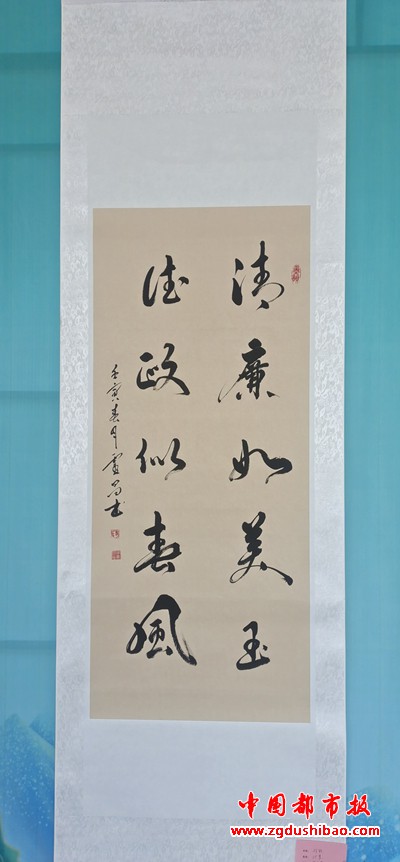 清廉如美玉
德政似春风
壬寅春月
书
中国都市报
www.zgdushibao.com